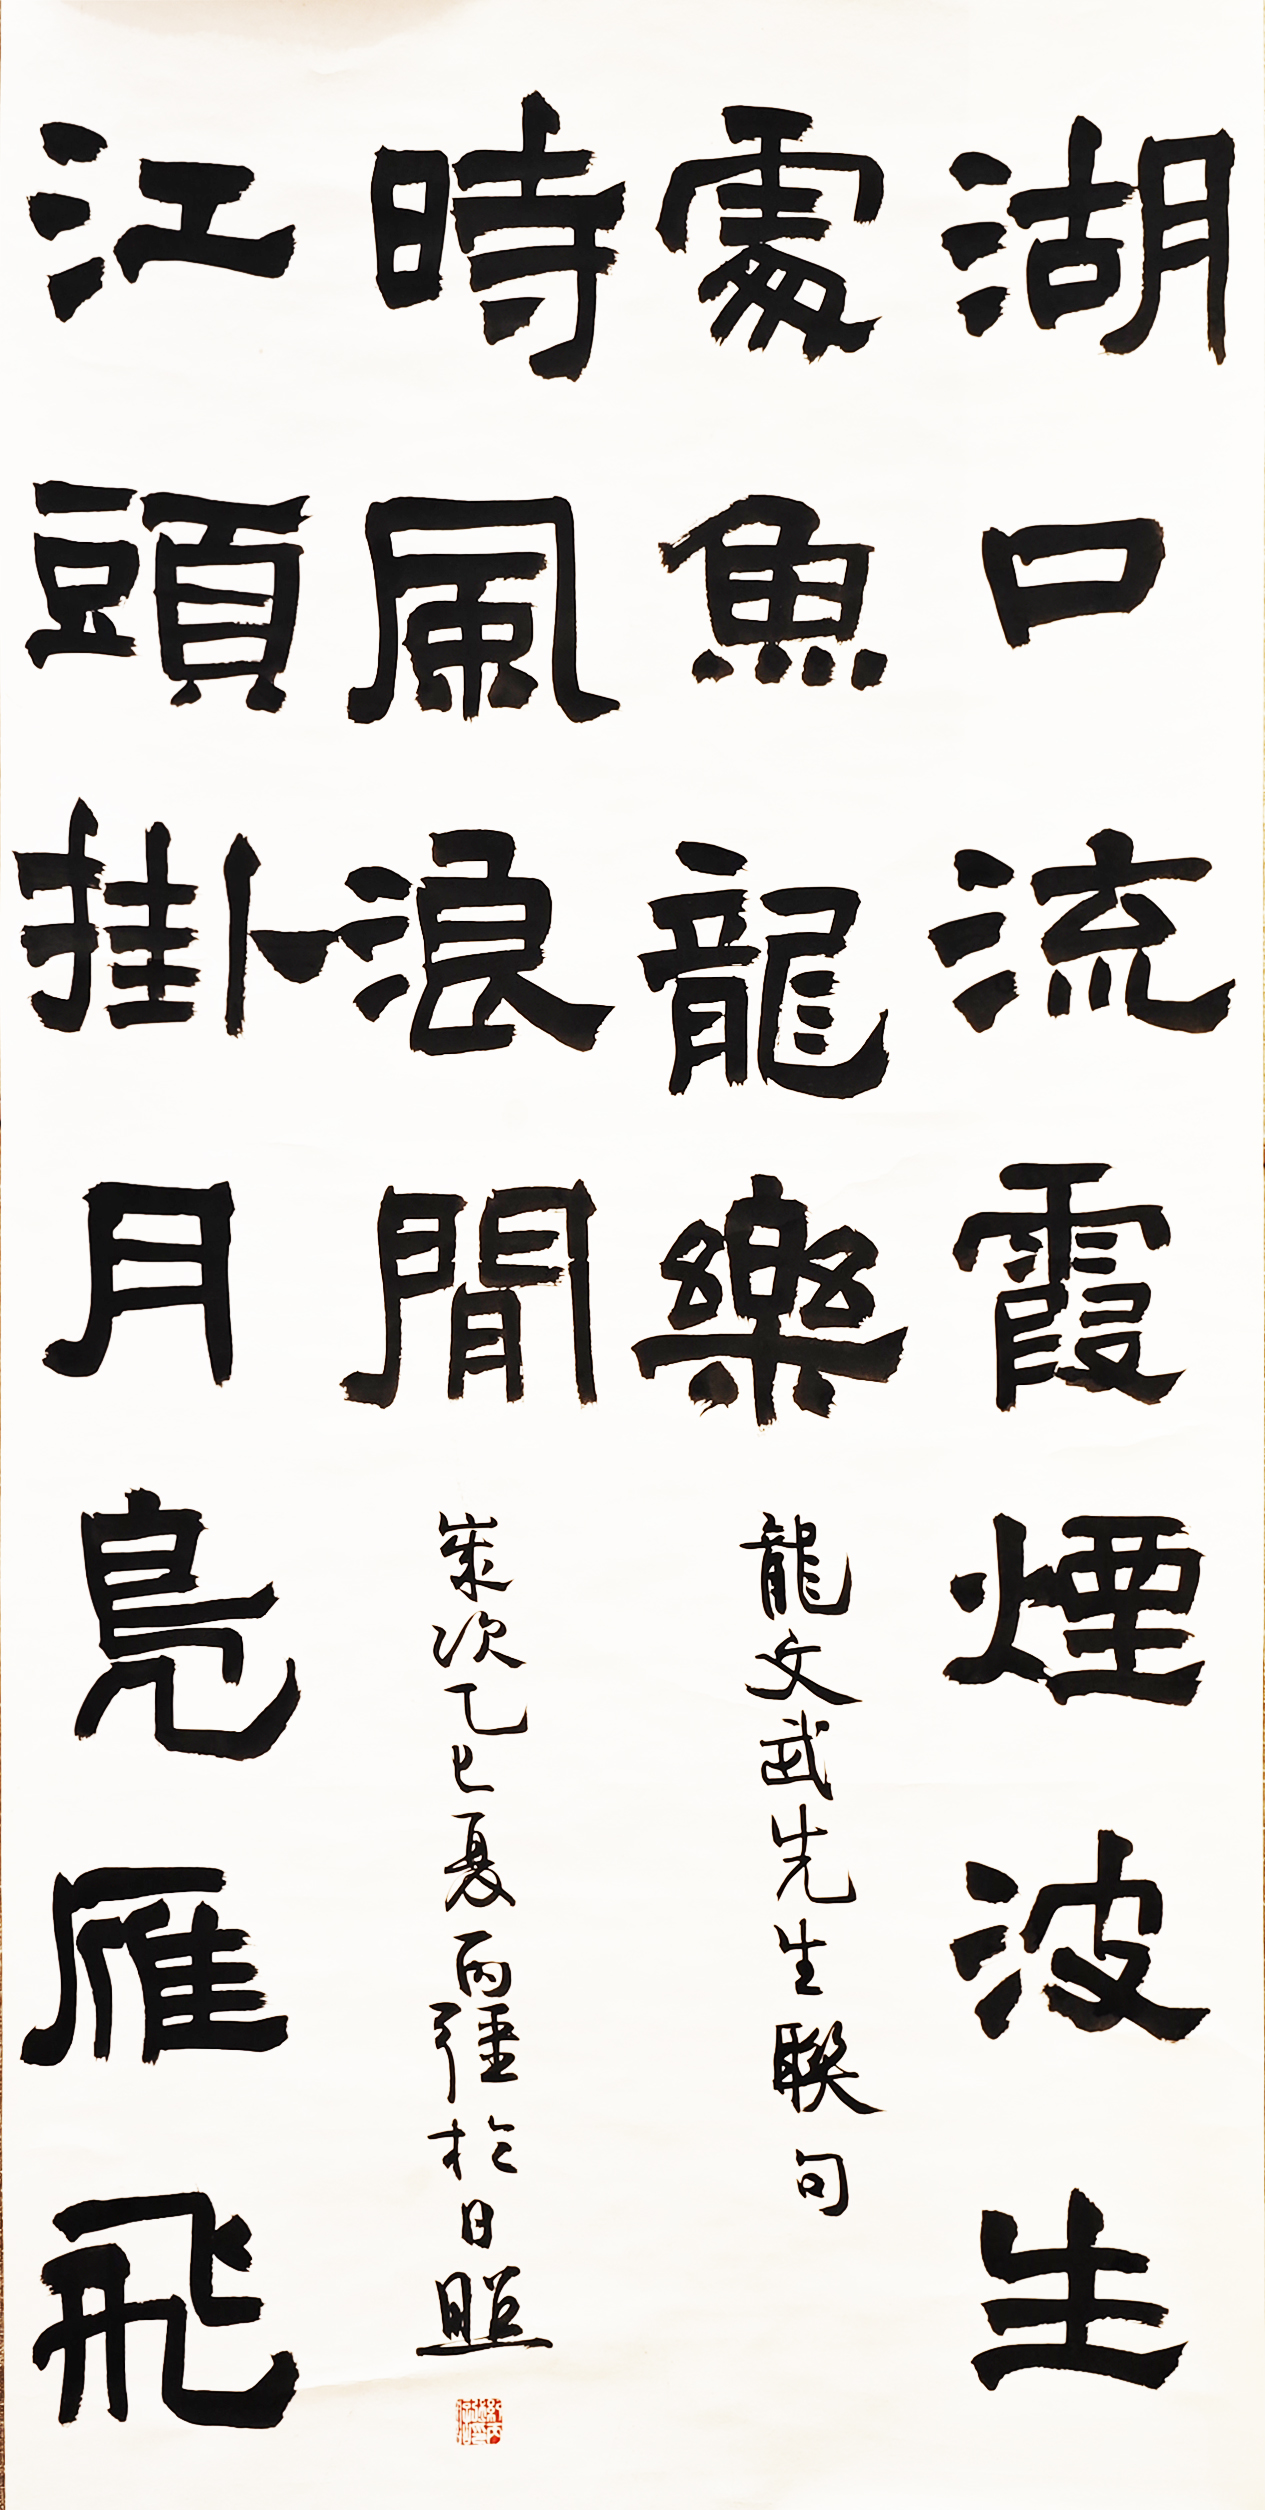 湖口流霞煙波生
處魚龍樂
龍文武先生聯句
江頭掛月鳧雁飛
時風浪閒
歲次乙巳夏丙彊於日照